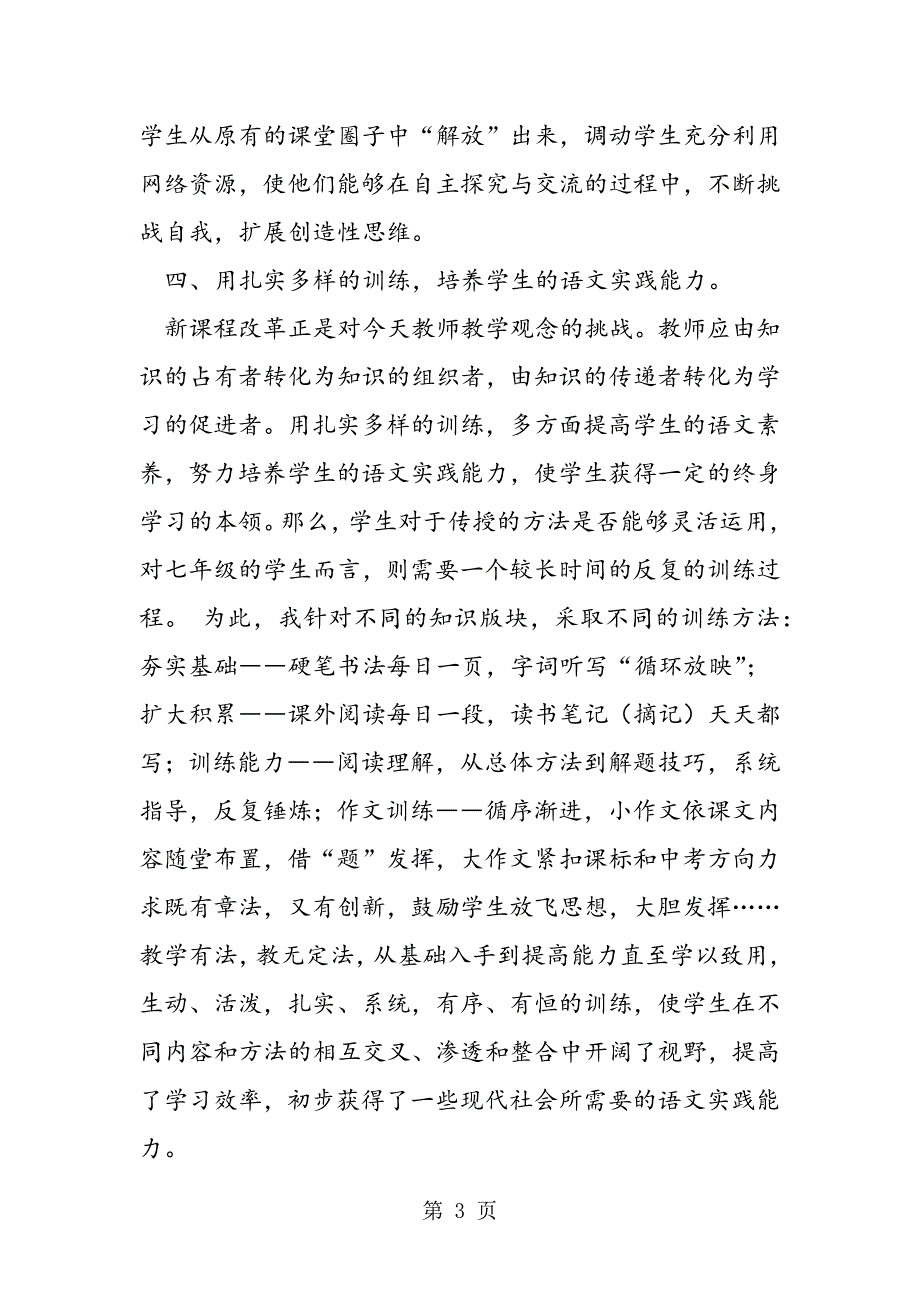 学生从原有的课堂圈子中“解放”出来，调动学生充分利用
网络资源，使他们能够在自主探究与交流的过程中，不断挑
战自我，扩展创造性思维。
四、用扎实多样的训练，培养学生的语文实践能力。
新课程改革正是对今天教师教学观念的挑战。教师应由知
识的占有者转化为知识的组织者，由知识的传递者转化为学
习的促进者。用扎实多样的训练，多方面提高学生的语文素
养，努力培养学生的语文实践能力，使学生获得一定的终身
学习的本领。那么，学生对于传授的方法是否能够灵活运用，
对七年级的学生而言，则需要一个较长时间的反复的训练过
程。 为此，我针对不同的知识版块，采取不同的训练方法：
夯实基础——硬笔书法每日一页，字词听写“循环放映”；
扩大积累——课外阅读每日一段，读书笔记（摘记）天天都
写；训练能力——阅读理解，从总体方法到解题技巧，系统
指导，反复锤炼；作文训练——循序渐进，小作文依课文内
容随堂布置，借“题”发挥，大作文紧扣课标和中考方向力
求既有章法，又有创新，鼓励学生放飞思想，大胆发挥……
教学有法，教无定法，从基础入手到提高能力直至学以致用，
生动、活泼，扎实、系统，有序、有恒的训练，使学生在不
同内容和方法的相互交叉、渗透和整合中开阔了视野，提高
了学习效率，初步获得了一些现代社会所需要的语文实践能
力。
第 3 页